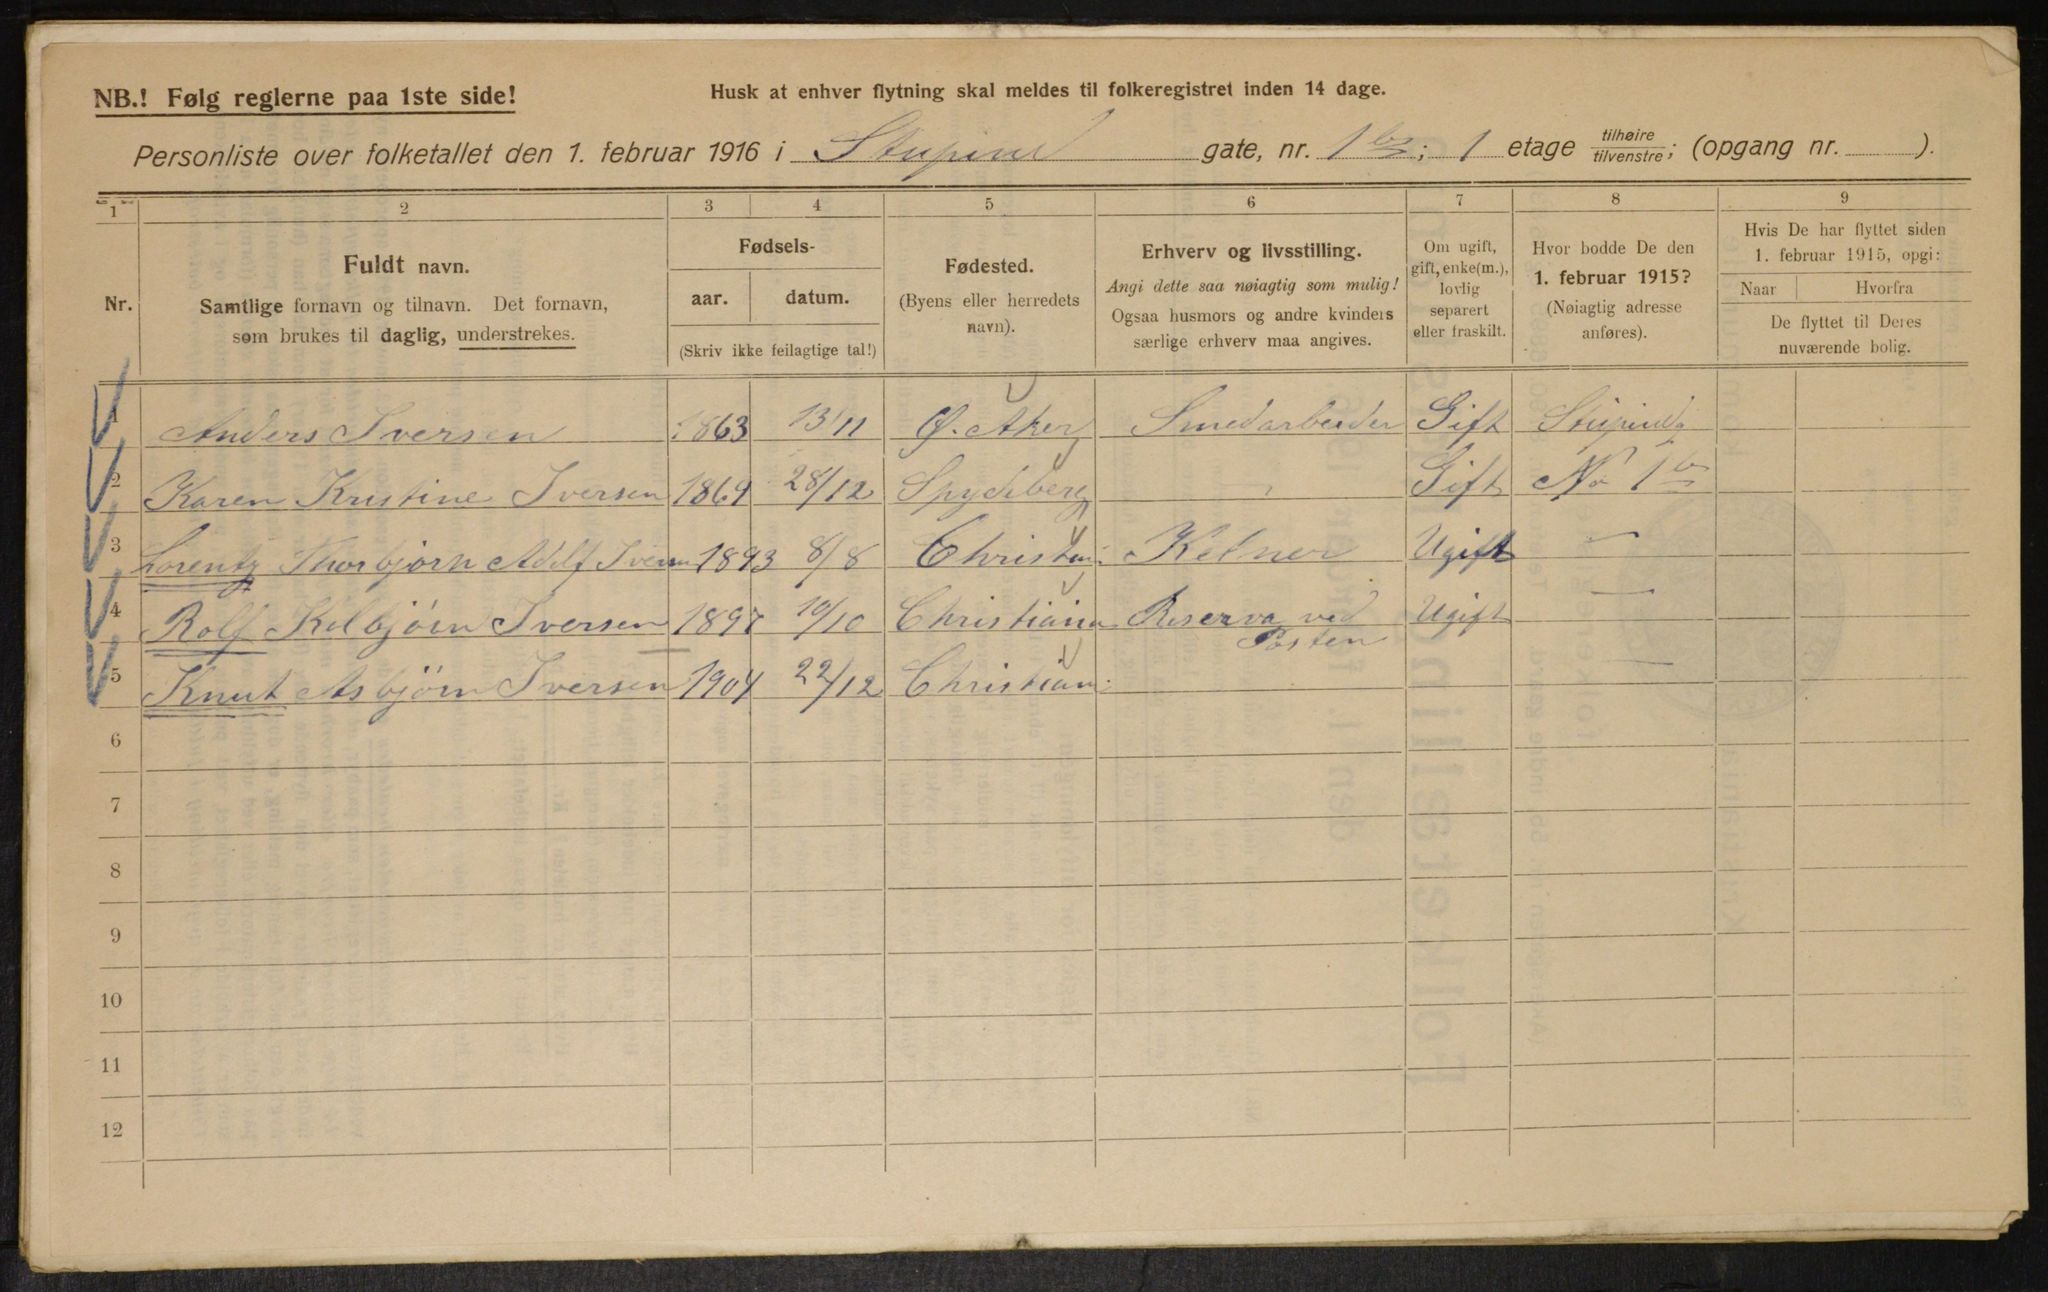 NB.! Følg reglerne paa 1ste side!
Husk at enhver flytning skal meldes til folkeregistret inden 14 dage.
Personliste over folketallet den 1. februar 1916 i Stupind gate, nr. 1b; 1 etage tilhøire tilvenstre; (opgang nr. ).
1 2 3 4 5 6 7 8 9
Nr.
Fuldt navn.
Samtlige fornavn og tilnavn. Det fornavn,
som brukes til daglig, understrekes.
Fødsels-
aar. datum.
(Skriv ikke feilagtige tal!)
Fødested.
(Byens eller herredets
navn).
Erhverv og livsstilling.
Angi dette saa nøiagtig som mulig!
Ogsaa husmors og andre kvinders
særlige erhverv maa angives.
Om ugift,
gift, enke(m.),
lovlig
separert
eller fraskilt.
Hvor bodde De den
1. februar 1915?
(Nøiagtig adresse
anføres).
Hvis De har flyttet siden
1. februar 1915, opgi:
Naar Hvorfra
De flyttet til Deres
nuværende bolig.
1 Anders Iversen 1863 13/11 Ø. Aker Smedarbeider Gift Stupindg
2 Karen Kristine Iversen 1869 28/12 Spydeberg Gift No 1b
3 Lorentz Thorbjørn Adolf Iversen 1893 8/8 Christiani Kelner Ugift —
4 Rolf Kolbjørn Iversen 1897 10/10 Christiania Reserva ved Posten Ugift —
5 Knut Asbjørn Iversen 1904 22/12 Christiani —
6
7
8
9
10
11
12